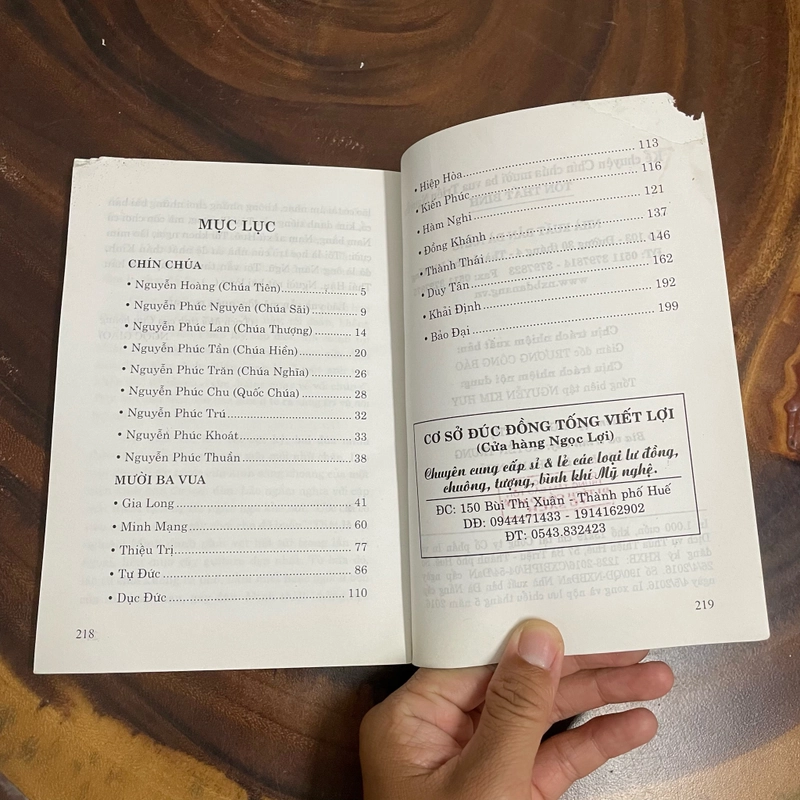 MỤC LỤC
CHÍN CHÚA
• Nguyễn Hoàng (Chúa Tiên) ........ 5
• Nguyễn Phúc Nguyên (Chúa Sãi) ........ 9
• Nguyễn Phúc Lan (Chúa Thượng) ........ 14
• Nguyễn Phúc Tần (Chúa Hiền) ........ 20
• Nguyễn Phúc Trăn (Chúa Nghĩa) ........ 26
• Nguyễn Phúc Chu (Quốc Chúa) ........ 28
• Nguyễn Phúc Trú ........ 32
• Nguyễn Phúc Khoát ........ 33
• Nguyễn Phúc Thuần ........ 38
MƯỜI BA VUA
• Gia Long ........ 41
• Minh Mạng ........ 60
• Thiệu Trị ........ 77
• Tự Đức ........ 86
• Dục Đức ........ 110
218
• Hiệp Hòa ........ 113
• Kiến Phúc ........ 116
• Hàm Nghi ........ 121
• Đồng Khánh ........ 137
• Thành Thái ........ 146
• Duy Tân ........ 162
• Khải Định ........ 192
• Bảo Đại ........ 199
CƠ SỞ ĐÚC ĐỒNG TỐNG VIẾT LỢI
(Cửa hàng Ngọc Lợi)
Chuyên cung cấp sỉ & lẻ các loại lư đồng,
chuông, tượng, bình khí Mỹ nghệ.
ĐC: 150 Bùi Thị Xuân - Thành phố Huế
DĐ: 0944471433 - 1914162902
ĐT: 0543.832423
219